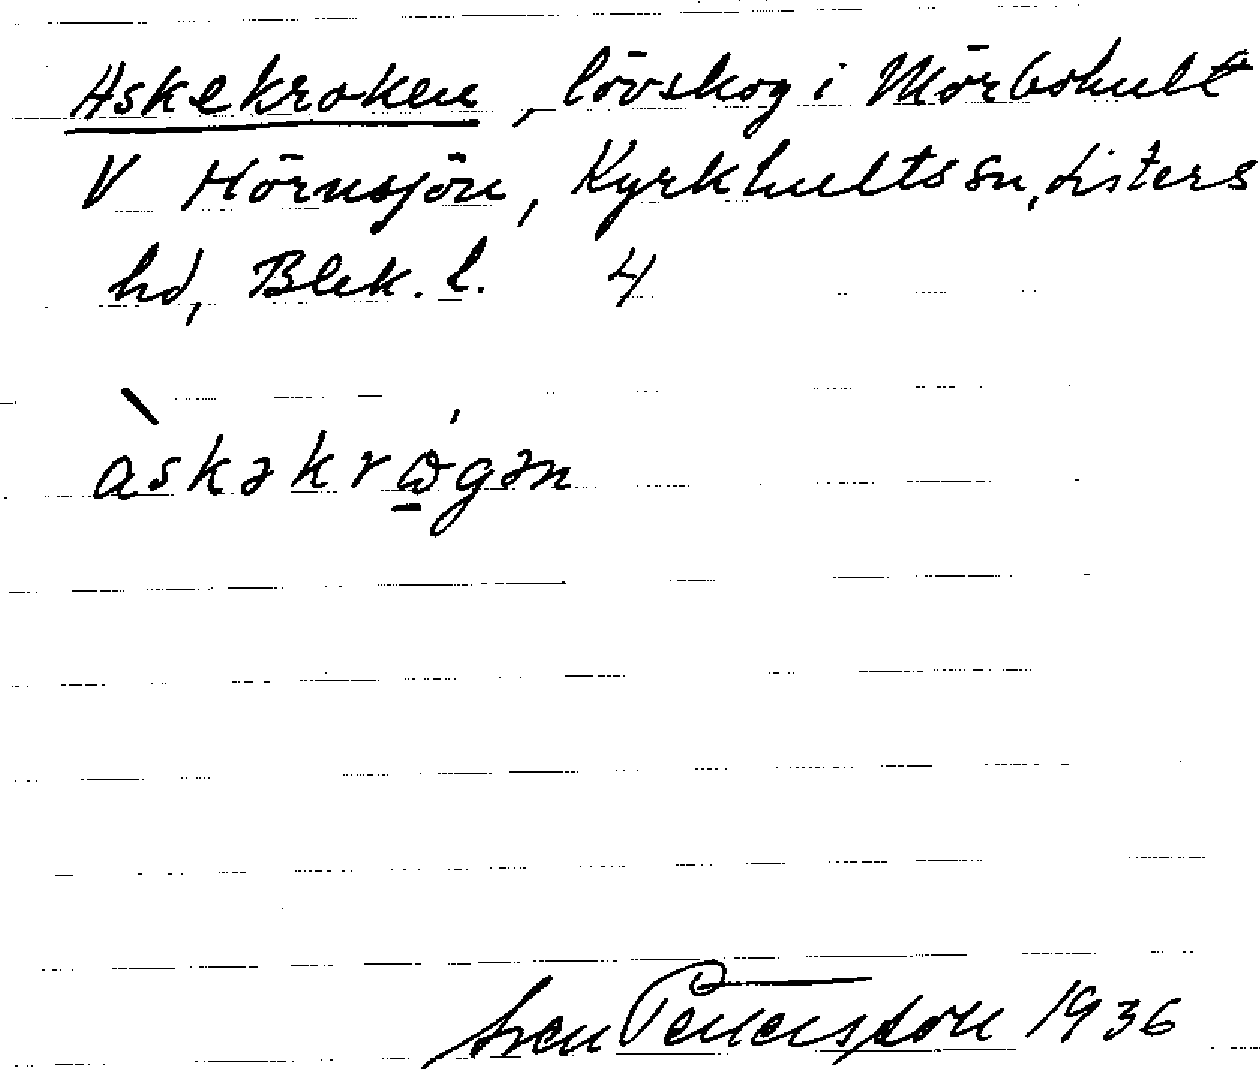 Askekroken, lövskog i Mörbohult
V Hörnsjön, Kyrkhults sn, Listers
hd, Blek. l. 4
àskəkrώ̱gən
Sven Pettersson 1936